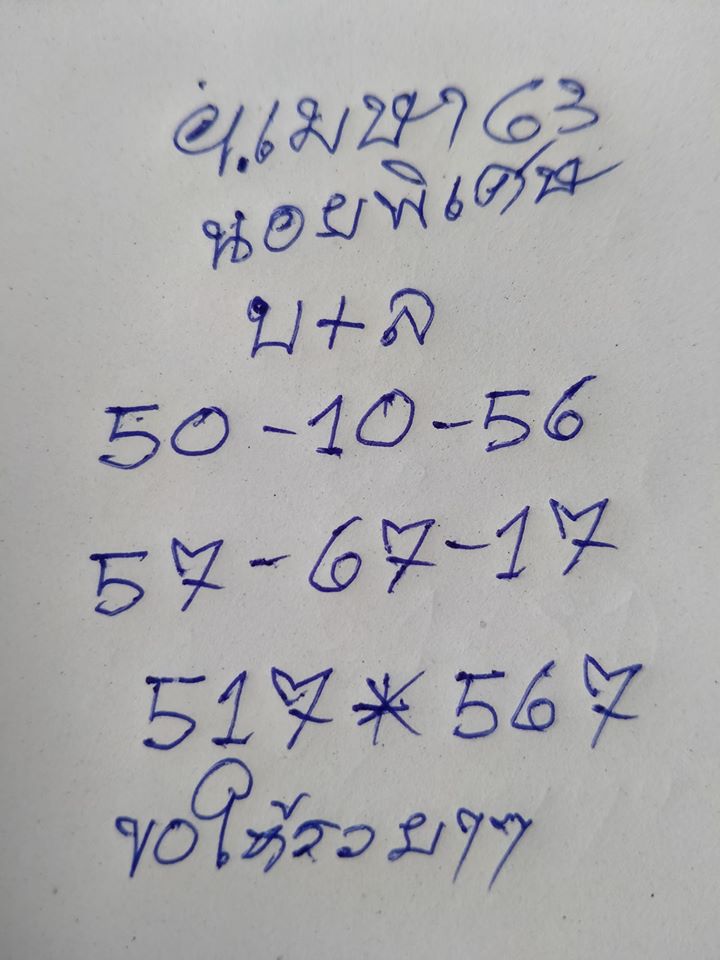 ย.เมษา 63
นอยพิเศษ
บ+ล
50-10-56
57-67-17
517*567
ขอให้รวยๆๆ